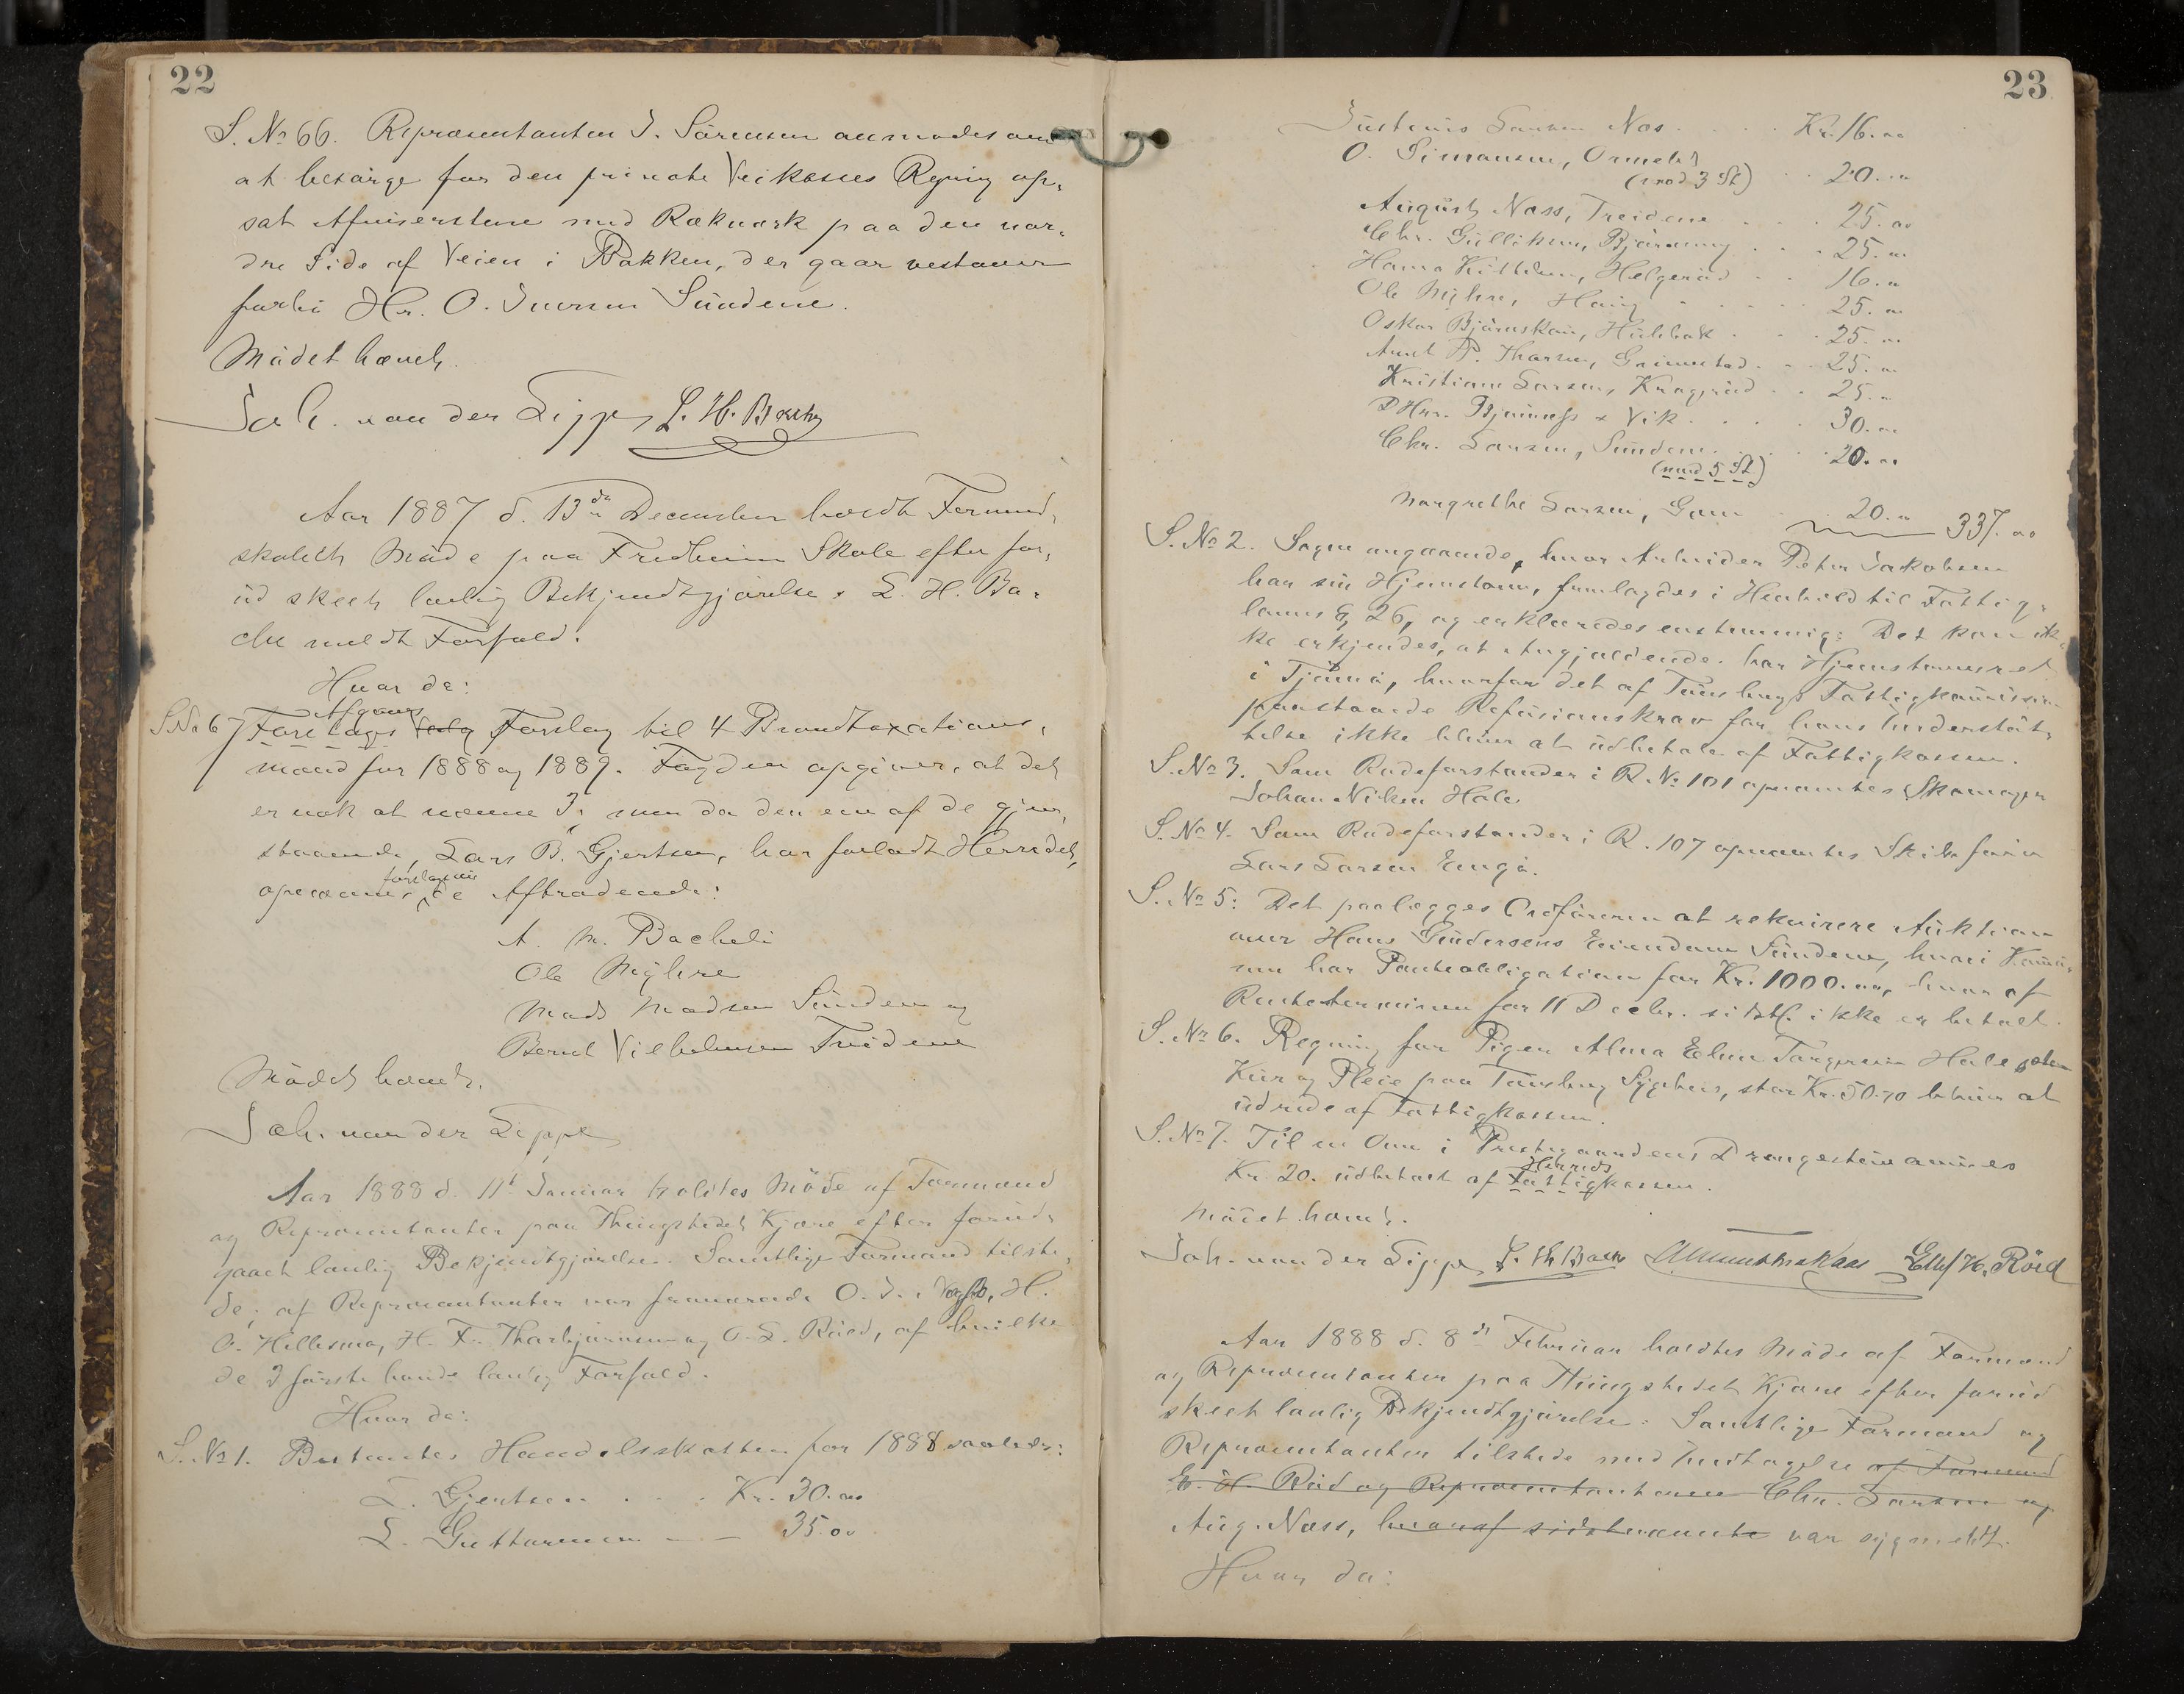 22
S. No 66. Repræsentanten J. Sörensen anmodes om
at besörge for den private Veikasses Regning op-
sat Afviserstene med Rækværk paa den nor-
dre Side af Veien i Bakken, der gaar vestover
forbi Hr. O. Iversen Sundene.
Mödet hævet.
Joh. van der Lippe L. H. Bache
Aar 1887 d. 13de December holdt Formand-
skabet Möde paa Fredheim Skole efter for-
ud skeet lovlig Bekjendtgjörelse. L. H. Ba-
che meldt Forfald.
Hvor da:
Afgaves
S. No 67 Foretages Valg Forslag til 4 Brandtaxations-
mænd for 1888 og 1889. Fogden opgiver, at det
er nok at nævne 3, men da den ene af de gjen-
staaende, Lars B. Gjertsen, har forladt Herredet,
foreslaaes
opnævnes de Aftrædende:
A. M. Bacheli
Ole Myhre
Mads Madsen Sundene og
Bernt Vilhelmsen Treidene
Mödet hævet.
Joh. van der Lippe
Aar 1888 d. 11t Januar holdtes Möde af Formænd
og Repræsentanter paa Thingstedet Kjære efter forud-
gaaet lovlig Bekjendtgjörelse. Samtlige Formænd tilste-
de; af Repræsentanter var fraværende O. J. H.
O. Hellesmo, H. F. Thorbjörnsen og O. L. Röed, af hvilke
de 2 förste havde lovlig Forfald.
Hvor da:
S. No 1. Bestemtes Handelsskatten for 1888 saaledes:
L. Gjertsen . . . Kr. 30.00
L. Guttormsen — — 35.00
23
Justenis Larsen Nes . . . . Kr. 16.00
O. Simonsen, Ormelet
(mod 3 St) . . 20.00
August Næss, Treidene . . . . 25.00
Chr. Gulliksen, Bjärnung . . . 25.00
Hanna Kittelsen, Helgeröd . . 16.00
Ole Myhre, Haug . . . . 25.00
Oskar Bjärnskau, Hulebak . . . 25.00
Aunet P. Thorsen, Grimestad . . . 25.00
Kristiane Larsen, Krageröd . . 25.00
D'Hrr. Bjönness & Vik . . . . 30.00
Chr. Larsen, Sundene . . . . 20.00
(mod 5 St)
Margrethe Larsen, Gam . . 20.00 337.00
S. No 2. Sagen angaaende, hvor Arbeider Peter Jakobsen
har sin Hjemstavn, fremlagdes i Henhold til Fattig-
lovens § 26, og erklæredes enstemmig: Det kan ik-
ke erkjendes, at Angjældende har Hjemstavnsret
i Tjömö, hvorfor det af Tönsbergs Fattigkommission
paastaaede Refusionskrav for hans Understöt-
telse ikke bliver at udbetale af Fattigkassen.
S. No 3. Som Rodeforstander i R. No 101 opnævntes Skomager
Johan Nilsen Hole.
S. No 4. Som Rodeforstander i R. 107 opnævntes Skibsförer
Lars Larsen Engö.
S. No 5: Det paalægges Ordföreren at rekvirere Auktion
over Hans Gundersens Eiendom Sundene, hvori Kommu-
nen har Panteobligation for Kr. 1000.00, hvor af
Renteterminen for 11 Decbr. sidstl. ikke er betalt.
S. No 6. Regning for Pigen Alma Eline Torgersen Hole
Kur og Pleie paa Tönsberg Sygehus, stor Kr. 50.70 bliver at
udrede af Fattigkassen.
S. No 7. Til en Ovn i Prestegaardens Drengestue anvises
Herreds
Kr. 20. udbetalt af Fattigkassen.
Mödet hævet.
Joh. van der Lippe L. H. Bache Ellef H. Röed
Aar 1888 d. 8de Februar holdtes Möde af Formænd
og Repræsentanter paa Thingstedet Kjære efter forud
skeet lovlig Bekjendtgjörelse: Samtlige Formænd og
Repræsentanter tilstede med Undtagelse af Formænd
E. H. Röd og Repræsentanterne Chr. Larsen og
Aug. Næss, hvoraf sidstnævnte var sygmeldt.
Hvor da: